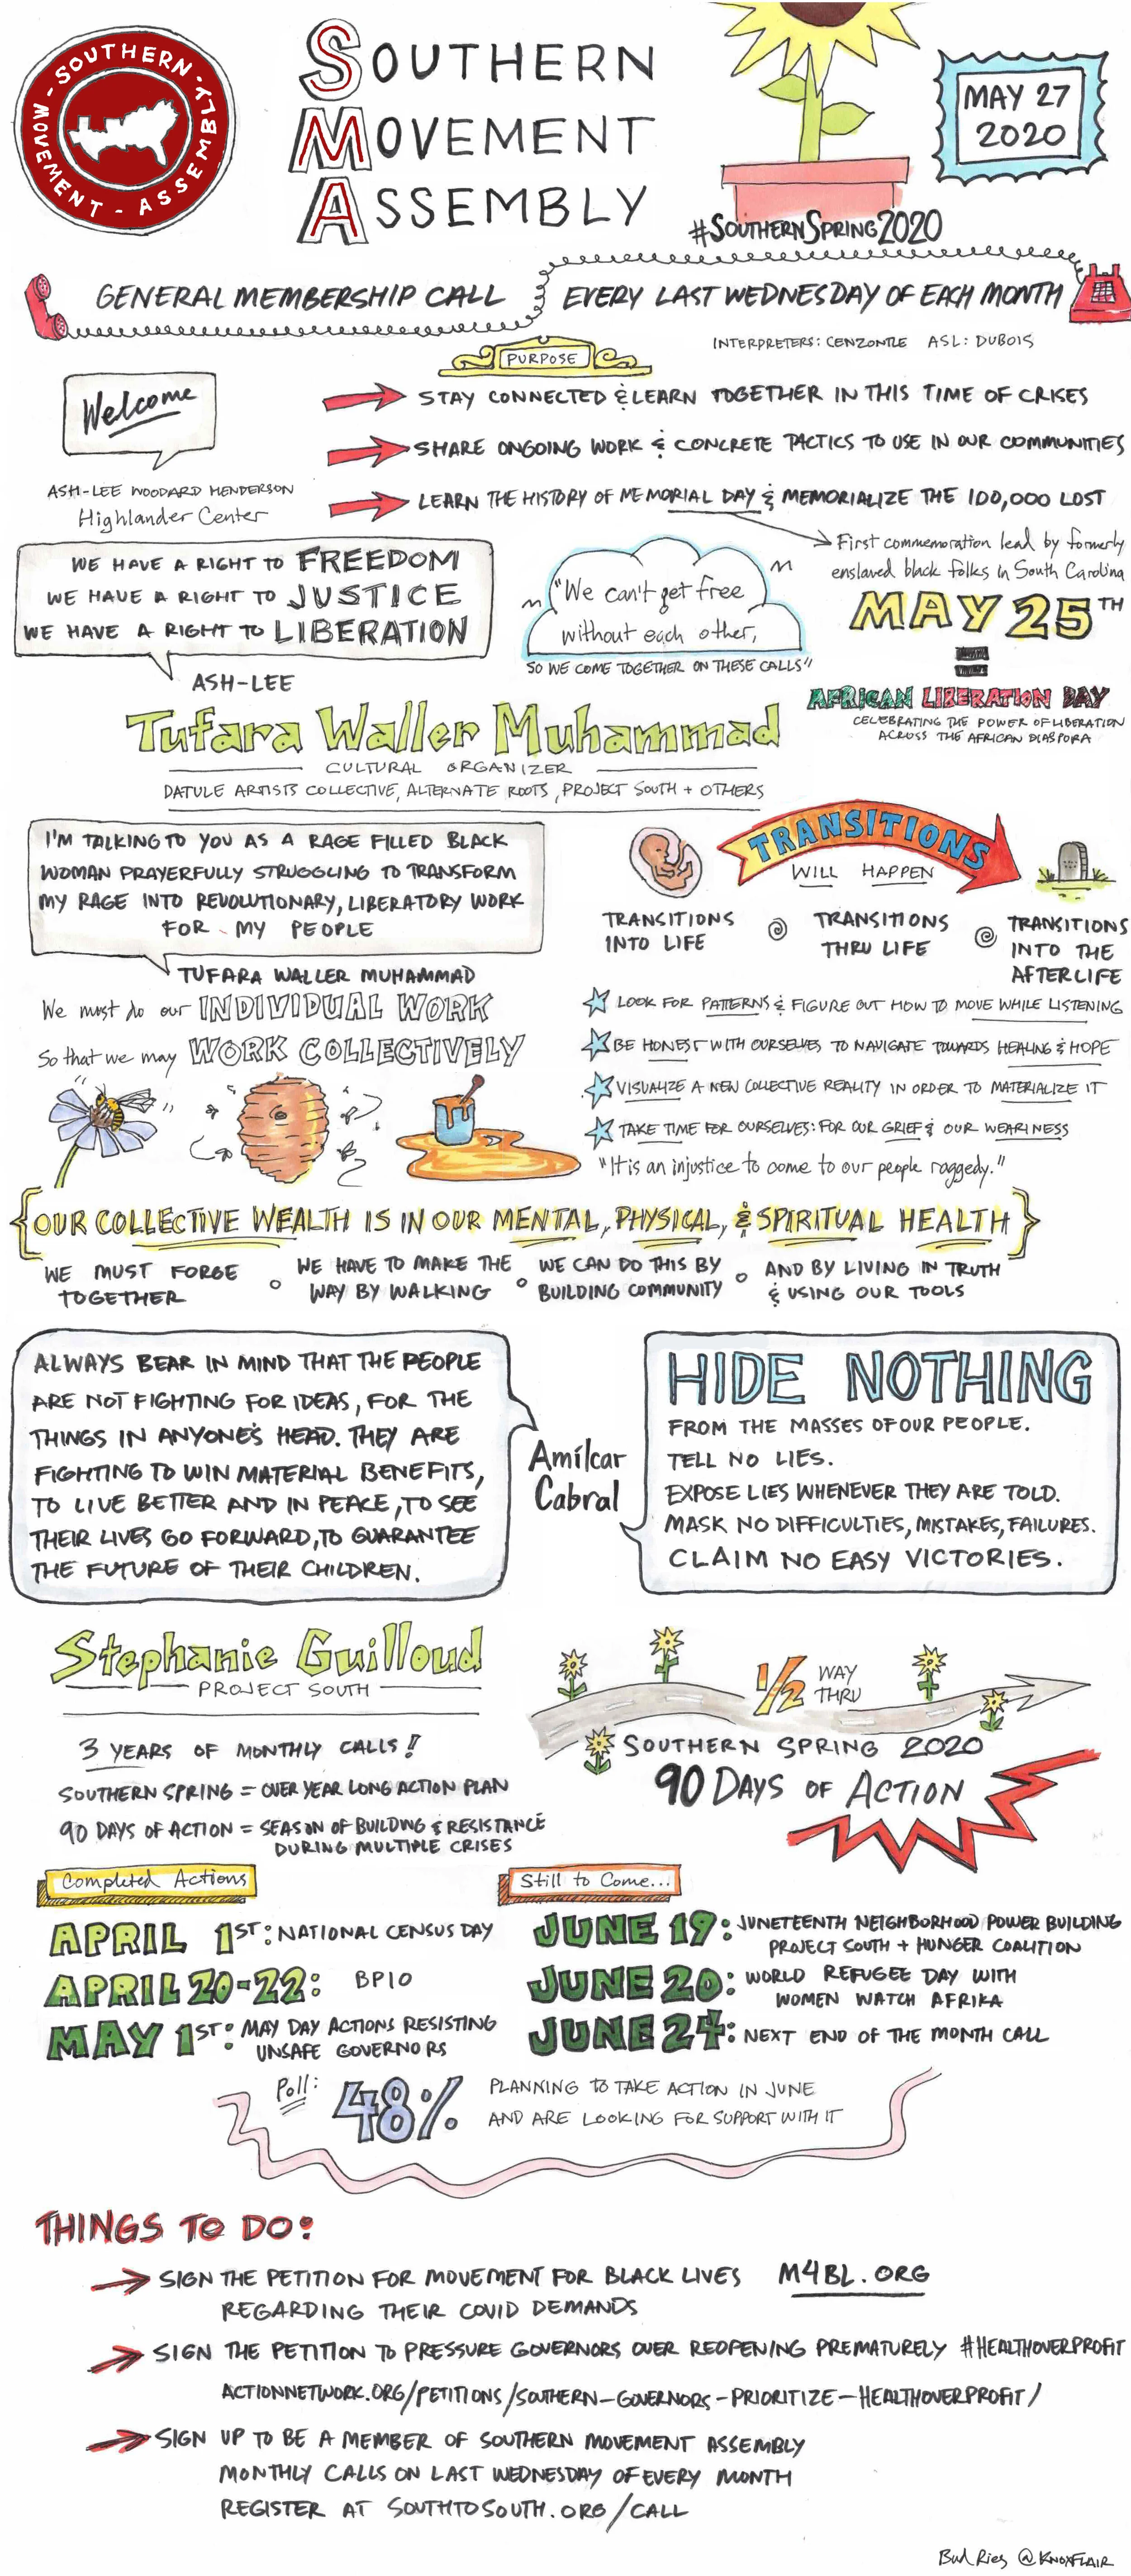 SOUTHERN · MOVEMENT - ASSEMBLY
SOUTHERN
MOVEMENT
ASSEMBLY
MAY 27
2020
#SOUTHERNSPRING2020
GENERAL MEMBERSHIP CALL
EVERY LAST WEDNESDAY OF EACH MONTH
INTERPRETERS: CENZONTLE ASL: DUBOIS
PURPOSE
Welcome
ASH-LEE WOODARD HENDERSON
Highlander Center
STAY CONNECTED & LEARN TOGETHER IN THIS TIME OF CRISES
SHARE ONGOING WORK & CONCRETE TACTICS TO USE IN OUR COMMUNITIES
LEARN THE HISTORY OF MEMORIAL DAY & MEMORIALIZE THE 100,000 LOST
First commemoration lead by formerly
enslaved black folks in South Carolina
WE HAVE A RIGHT TO FREEDOM
WE HAVE A RIGHT TO JUSTICE
WE HAVE A RIGHT TO LIBERATION
ASH-LEE
"We can't get free
without each other,
SO WE COME TOGETHER ON THESE CALLS"
MAY 25TH
=
AFRICAN LIBERATION DAY
CELEBRATING THE POWER OF LIBERATION
ACROSS THE AFRICAN DIASPORA
Tufara Waller Muhammad
CULTURAL ORGANIZER
DATULE ARTISTS COLLECTIVE, ALTERNATE ROOTS, PROJECT SOUTH + OTHERS
I'M TALKING TO YOU AS A RAGE FILLED BLACK
WOMAN PRAYERFULLY STRUGGLING TO TRANSFORM
MY RAGE INTO REVOLUTIONARY, LIBERATORY WORK
FOR MY PEOPLE
TUFARA WALLER MUHAMMAD
TRANSITIONS
WILL HAPPEN
TRANSITIONS
INTO LIFE
TRANSITIONS
THRU LIFE
TRANSITIONS
INTO THE
AFTERLIFE
We must do our INDIVIDUAL WORK
So that we may WORK COLLECTIVELY
LOOK FOR PATTERNS & FIGURE OUT HOW TO MOVE WHILE LISTENING
BE HONEST WITH OURSELVES TO NAVIGATE TOWARDS HEALING & HOPE
VISUALIZE A NEW COLLECTIVE REALITY IN ORDER TO MATERIALIZE IT
TAKE TIME FOR OURSELVES: FOR OUR GRIEF & OUR WEARINESS
"It is an injustice to come to our people raggedy."
{OUR COLLECTIVE WEALTH IS IN OUR MENTAL, PHYSICAL, & SPIRITUAL HEALTH}
WE MUST FORGE
TOGETHER
WE HAVE TO MAKE THE
WAY BY WALKING
WE CAN DO THIS BY
BUILDING COMMUNITY
AND BY LIVING IN TRUTH
& USING OUR TOOLS
ALWAYS BEAR IN MIND THAT THE PEOPLE
ARE NOT FIGHTING FOR IDEAS, FOR THE
THINGS IN ANYONE'S HEAD. THEY ARE
FIGHTING TO WIN MATERIAL BENEFITS,
TO LIVE BETTER AND IN PEACE, TO SEE
THEIR LIVES GO FORWARD, TO GUARANTEE
THE FUTURE OF THEIR CHILDREN.
Amílcar
Cabral
HIDE NOTHING
FROM THE MASSES OF OUR PEOPLE.
TELL NO LIES.
EXPOSE LIES WHENEVER THEY ARE TOLD.
MASK NO DIFFICULTIES, MISTAKES, FAILURES.
CLAIM NO EASY VICTORIES.
Stephanie Guilloud
PROJECT SOUTH
3 YEARS OF MONTHLY CALLS!
SOUTHERN SPRING = OVER YEAR LONG ACTION PLAN
90 DAYS OF ACTION = SEASON OF BUILDING & RESISTANCE
DURING MULTIPLE CRISES
1/2 WAY
THRU
SOUTHERN SPRING 2020
90 DAYS OF ACTION
Completed Actions
APRIL 1ST: NATIONAL CENSUS DAY
APRIL 20-22: BP10
MAY 1ST: MAY DAY ACTIONS RESISTING
UNSAFE GOVERNORS
Still to Come...
JUNE 19: JUNETEENTH NEIGHBORHOOD POWER BUILDING
PROJECT SOUTH + HUNGER COALITION
JUNE 20: WORLD REFUGEE DAY WITH
WOMEN WATCH AFRIKA
JUNE 24: NEXT END OF THE MONTH CALL
Poll: 48% PLANNING TO TAKE ACTION IN JUNE
AND ARE LOOKING FOR SUPPORT WITH IT
THINGS TO DO:
SIGN THE PETITION FOR MOVEMENT FOR BLACK LIVES M4BL.ORG
REGARDING THEIR COVID DEMANDS
SIGN THE PETITION TO PRESSURE GOVERNORS OVER REOPENING PREMATURELY #HEALTHOVERPROFIT
ACTIONNETWORK.ORG/PETITIONS/SOUTHERN-GOVERNORS-PRIORITIZE-HEALTHOVERPROFIT/
SIGN UP TO BE A MEMBER OF SOUTHERN MOVEMENT ASSEMBLY
MONTHLY CALLS ON LAST WEDNESDAY OF EVERY MONTH
REGISTER AT SOUTHTOSOUTH.ORG/CALL
Bud Ries @KNOXFLAIR